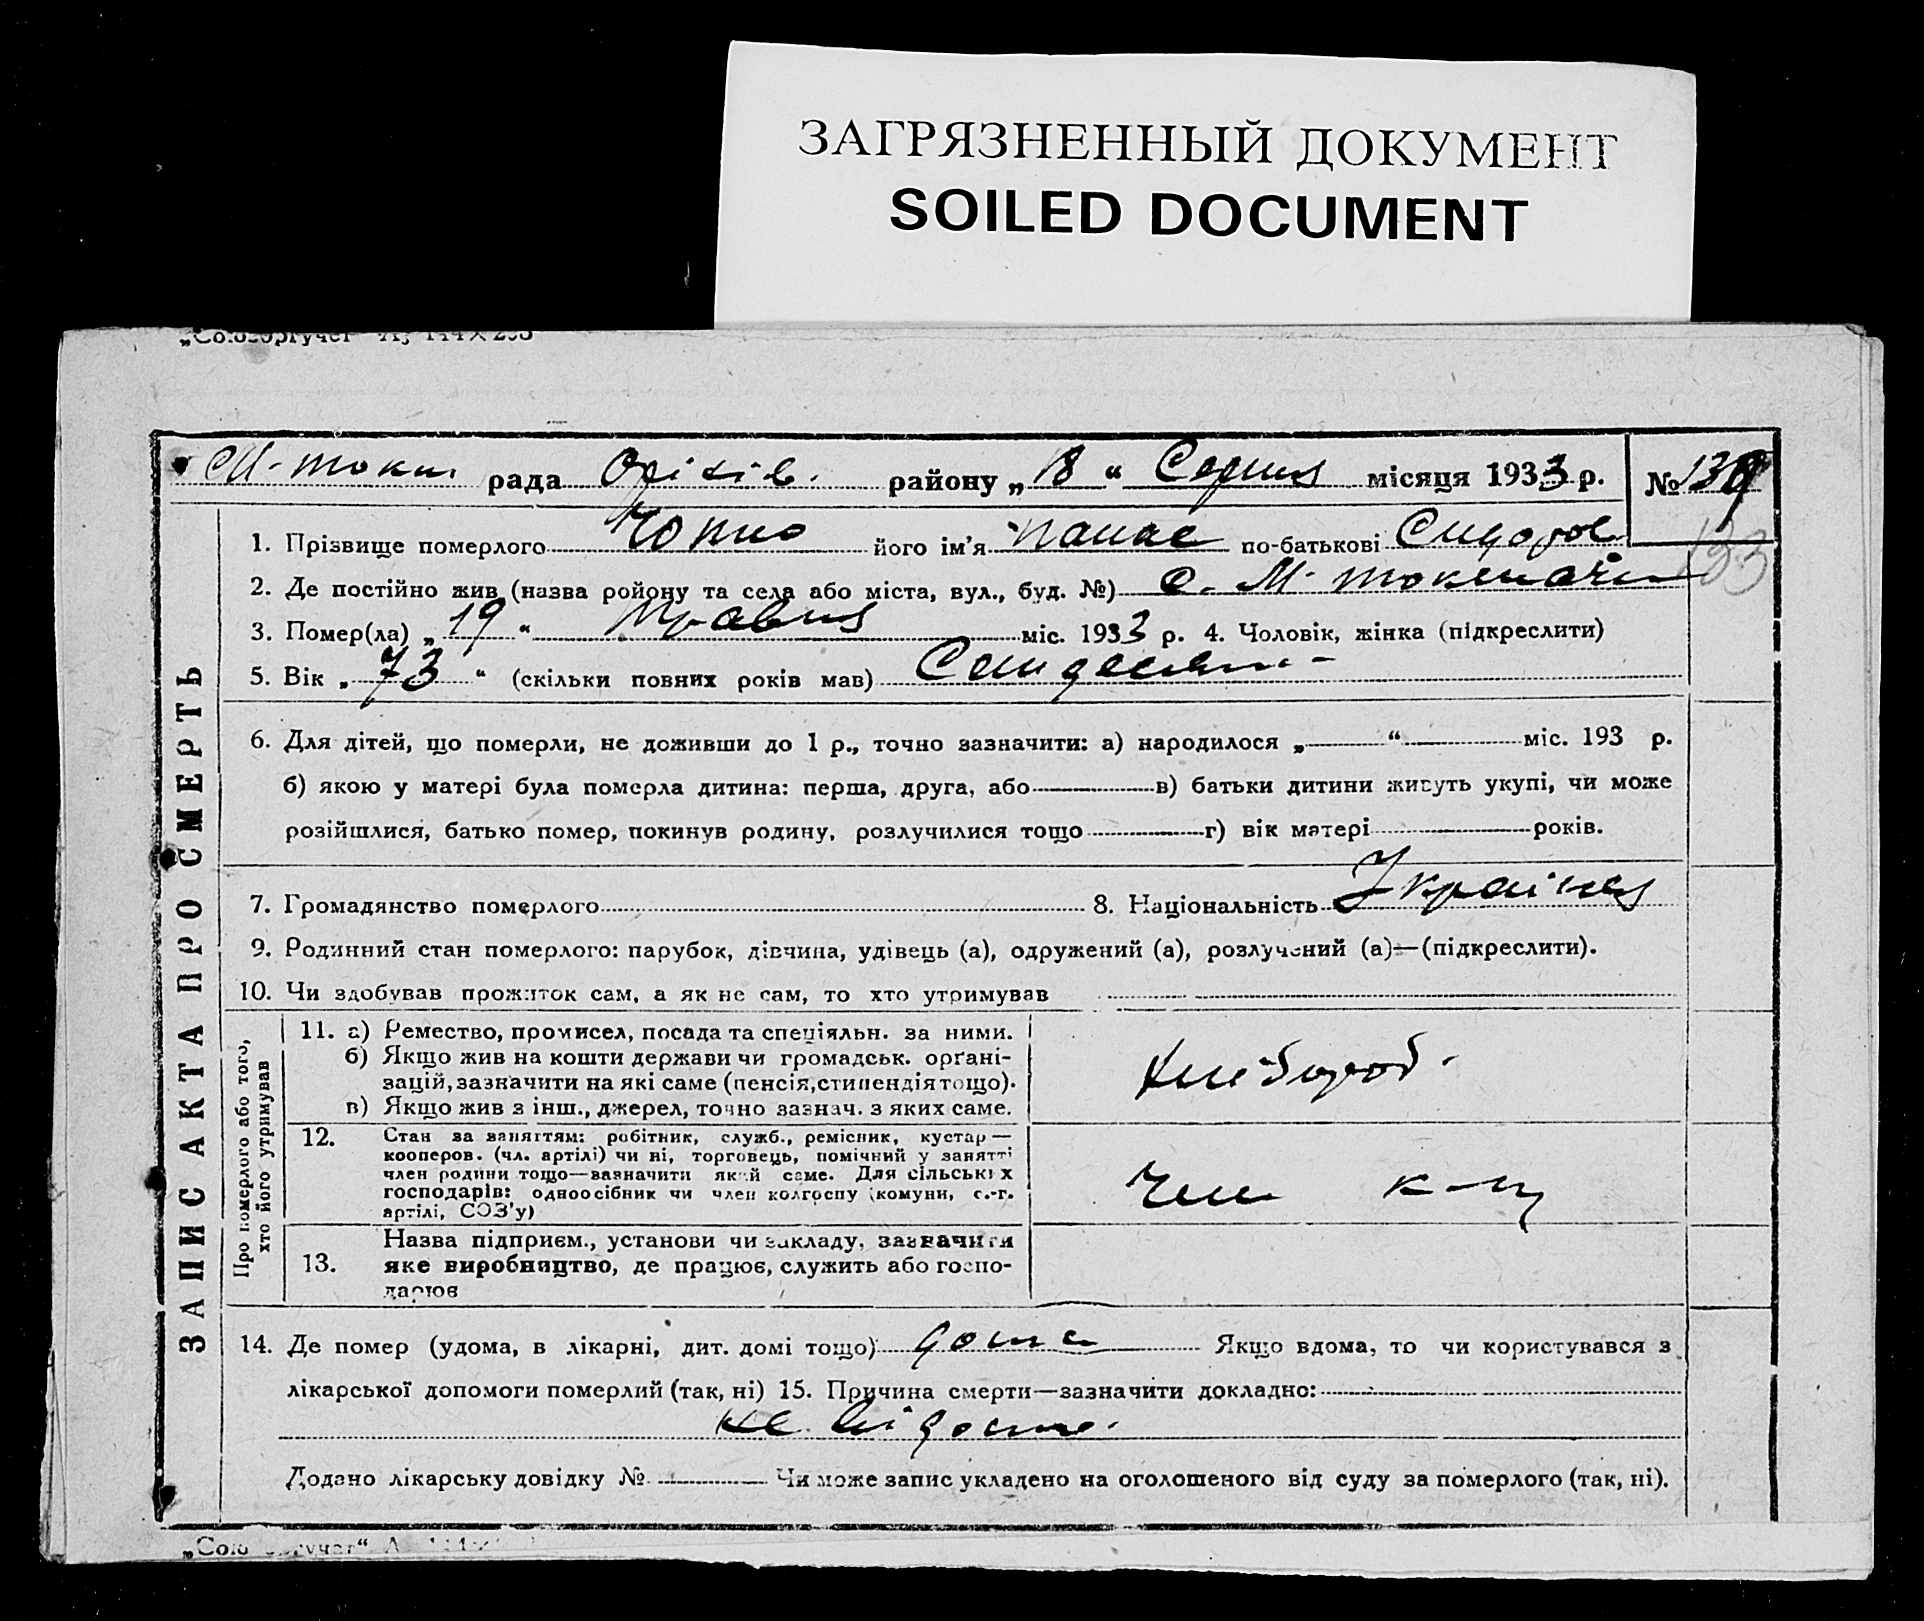 ЗАГРЯЗНЕННЫЙ ДОКУМЕНТ
SOILED DOCUMENT
М-токм. рада Оріхів. району „18“ Серпня місяця 1933 р. №
1. Прізвище померлого його ім'я Панас по-батькові Сидоров
2. Де постійно жив (назва ройону та села або міста, вул., буд. №) с. М-токмачка
3. Помер(ла) „19“ Травня міс. 1933 р. 4. Чоловік, жінка (підкреслити)
5. Вік „73“ (скільки повних років мав)
6. Для дітей, що померли, не доживши до 1 р., точно зазначити: а) народилося „ “ міс. 193 р.
б) якою у матері була померла дитина: перша, друга, або в) батьки дитини живуть укупі, чи може
розійшлися, батько помер, покинув родину, розлучилися тощо г) вік матері років.
7. Громадянство померлого 8. Національність Українец
9. Родинний стан померлого: парубок, дівчина, удівець (а), одружений (а), розлучений (а)—(підкреслити).
10. Чи здобував прожиток сам, а як не сам, то хто утримував
ЗАПИС АКТА ПРО СМЕРТЬ
Про померлого або того,
хто його утримував
11. а) Ремество, промисел, посада та спеціяльн. за ними.
б) Якщо жив на кошти держави чи громадськ. орґані-
зацій, зазначити на які саме (пенсія, стипендія тощо).
в) Якщо жив з інш., джерел, точно зазнач. з яких саме.
Хлібороб.
12. Стан за заняттям: робітник, служб., ремісник, кустар—
кооперов. (чл. артілі) чи ні, торговець, помічний у занятті
член родини тощо—зазначити який саме. Для сільських
господарів: одноосібник чи член колгоспу (комуни, с.-г.
артілі, СОЗ'у)
Член к-пу
13. Назва підприєм., установи чи закладу, зазначити
яке виробництво, де працює, служить або госпо-
дарює
14. Де помер (удома, в лікарні, дит. домі тощо) дома Якщо вдома, то чи користувався з
лікарської допомоги померлий (так, ні) 15. Причина смерти—зазначити докладно:
не відомо.
Додано лікарську довідку № Чи може запис укладено на оголошеного від суду за померлого (так, ні).